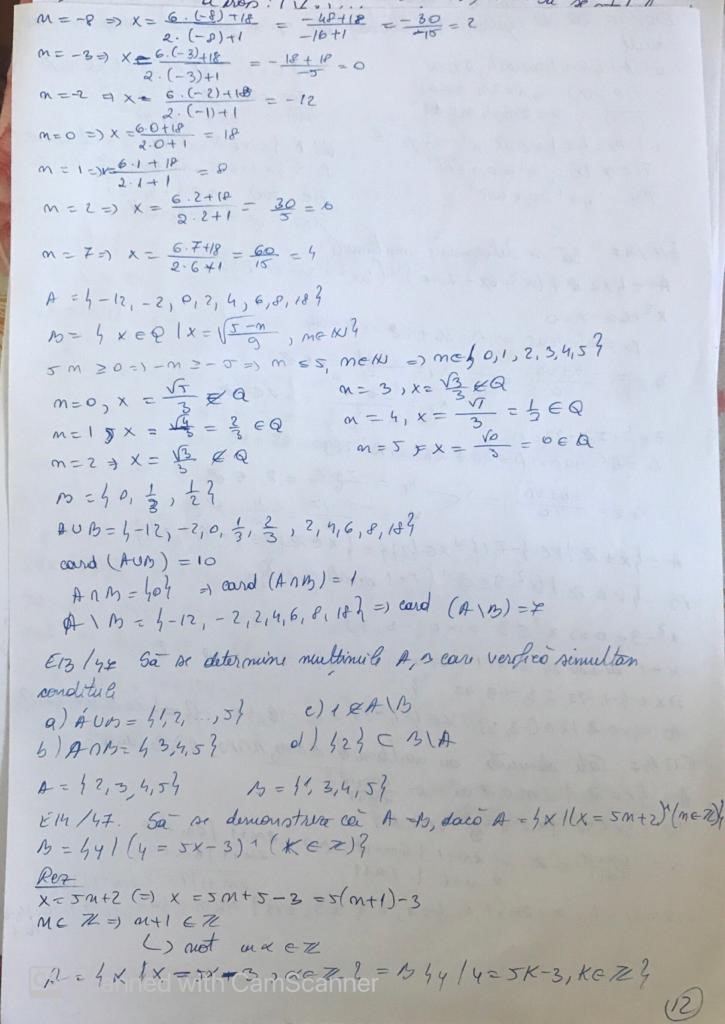 n = -8 => x = 6·(-8)+18 / 2·(-8)+1 = -48+18 / -16+1 = -30 / -15 = 2
n = -3 => x = 6·(-3)+18 / 2·(-3)+1 = -18+18 / -5 = 0
n = -2 => x = 6·(-2)+18 / 2·(-1)+1 = -12
n = 0 => x = 6·0+18 / 2·0+1 = 18
n = 1 => x = 6·1+18 / 2·1+1 = 8
n = 2 => x = 6·2+18 / 2·2+1 = 30/5 = 6
n = 7 => x = 6·7+18 / 2·6+1 = 60/15 = 4
A = {-12, -2, 0, 2, 4, 6, 8, 18}
B = { x ∈ Q | x = √(5-n / 9), n ∈ N}
5 n ≥ 0 => -n ≥ -5 => n ≤ 5, n ∈ N => n ∈ {0,1,2,3,4,5}
n = 0, x = √5/3 ∉ Q
n = 1, x = √4/3 = 2/3 ∈ Q
n = 2 => x = √3/3 ∉ Q
n = 3, x = √3/3 ∉ Q
n = 4, x = √1/3 = 1/3 ∈ Q
n = 5, x = √0/3 = 0 ∈ Q
B = {0, 1/3, 1/2}
A∪B = {-12, -2, 0, 1/3, 2/3, 2, 4, 6, 8, 18}
card (A∪B) = 10
A∩B = {0} => card (A∩B) = 1
A \ B = {-12, -2, 2, 4, 6, 8, 18} => card (A\B) = 7
E13/47 Să se determine mulțimile A, B care verifică simultan
condițiile
a) A∪B = {1,2,...,5} c) 1 ∉ A\B
b) A∩B = {3,4,5} d) {2} ⊂ B\A
A = {2,3,4,5} B = {1,3,4,5}
E14/47. Să se demonstreze că A = B, dacă A = {x | (x = 5n+2) ^ (n ∈ Z)}
B = {y | (y = 5x-3) ^ (K ∈ Z)}
Rez
x = 5n+2 (=) x = 5n+5-3 = 5(n+1)-3
n ∈ Z => n+1 ∈ Z
↳ not cu α ∈ Z
A = {x | x = 5α-3, α ∈ Z} = B {y | y = 5K-3, K ∈ Z}
Scanned with CamScanner
12